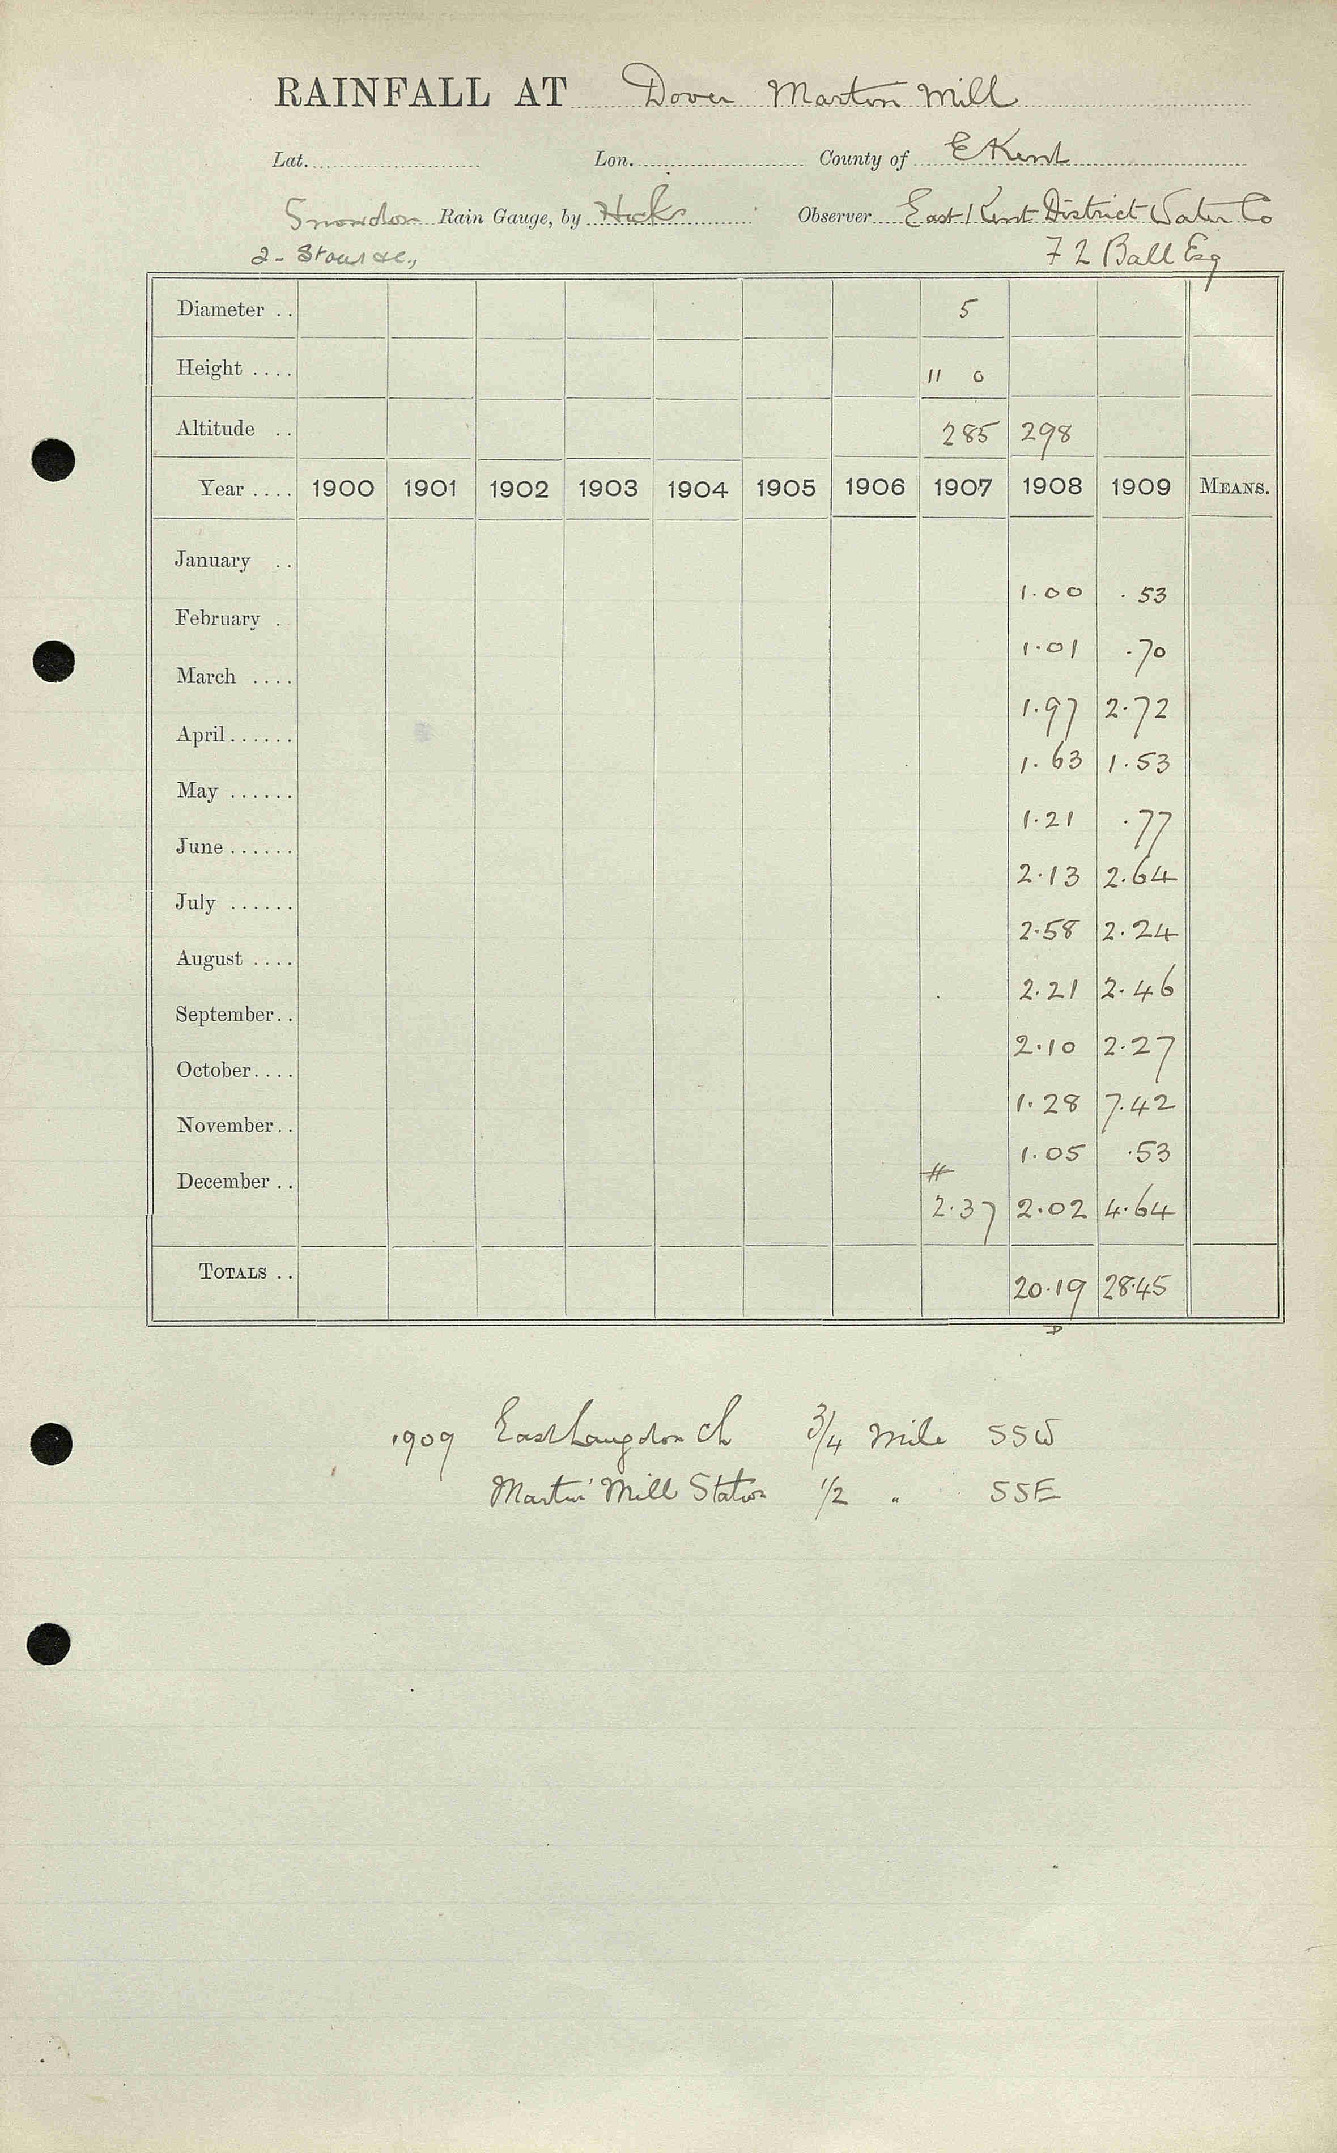 RAINFALL AT Dover Martin Mill
Lat. Lon. County of E Kent
Snowdon Rain Gauge, by Hicks Observer East Kent District Water Co
2 - Stour &c., 7 L Ball Esq
Diameter .. 5
Height .... 11 0
Altitude .. 285 298
Year .... 1900 1901 1902 1903 1904 1905 1906 1907 1908 1909 MEANS.
January .. 1.00 .53
February . 1.01 .70
March .... 1.97 2.72
April ...... 1.63 1.53
May ...... 1.21 .77
June ...... 2.13 2.64
July ...... 2.58 2.24
August .... 2.21 2.46
September.. 2.10 2.27
October.... 1.28 7.42
November.. 1.05 .53
December .. # 2.37 2.02 4.64
TOTALS .. 20.19 28.45
D
1909 East Langdon Ch 3/4 Mile SSW
Martin Mill Station 1/2 " SSE